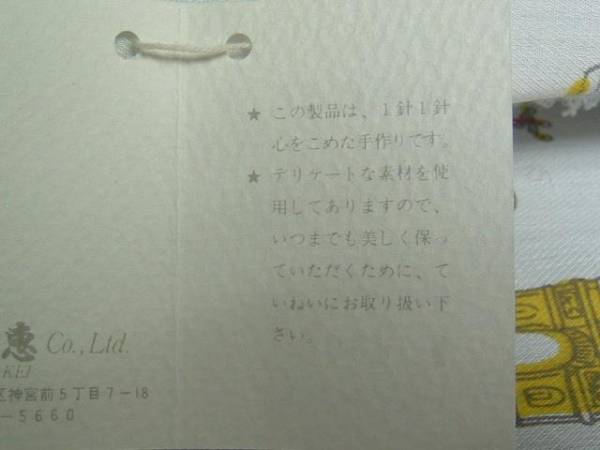 ★ この製品は、1針1針
心をこめた手作りです。
★ デリケートな素材を使
用してありますので、
いつまでも美しく保っ
ていただくために、て
いねいにお取り扱い下
さい。
恵 Co.,Ltd.
KEI
区神宮前5丁目7-18
-5660